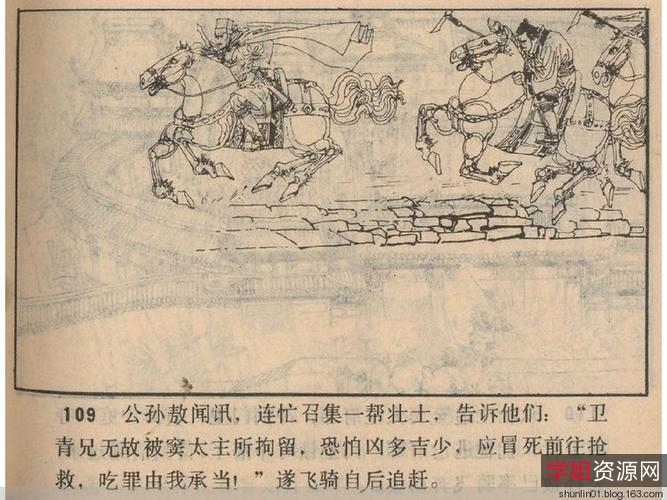 109 公孙敖闻讯，连忙召集一帮壮士，告诉他们：“卫
青兄无故被窦太主所拘留，恐怕凶多吉少，应冒死前往抢
救，吃罪由我承当！”遂飞骑自后追赶。
学姐资源网
shunlin01.blog.163.com